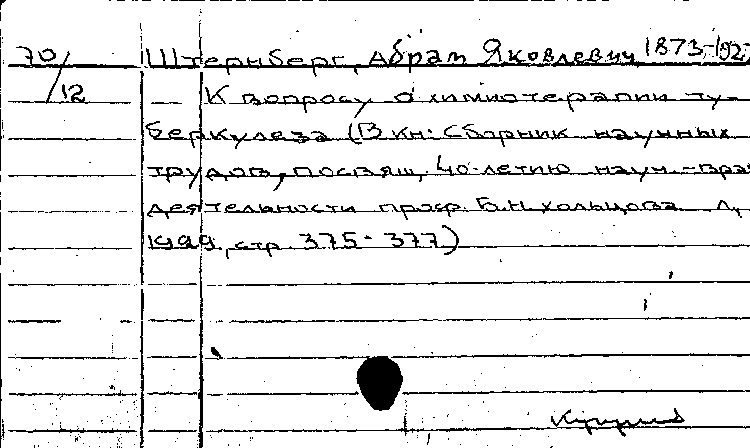 70/12 Штернберг, Абрам Яковлевич 1873-192
— К вопросу о химиотерапии ту-
беркулеза (В кн: Сборник научных
трудов, посвящ. 40-летию науч.-вра
деятельности проф. Б.Н. Хольцова. Л,
стр. 375-377)